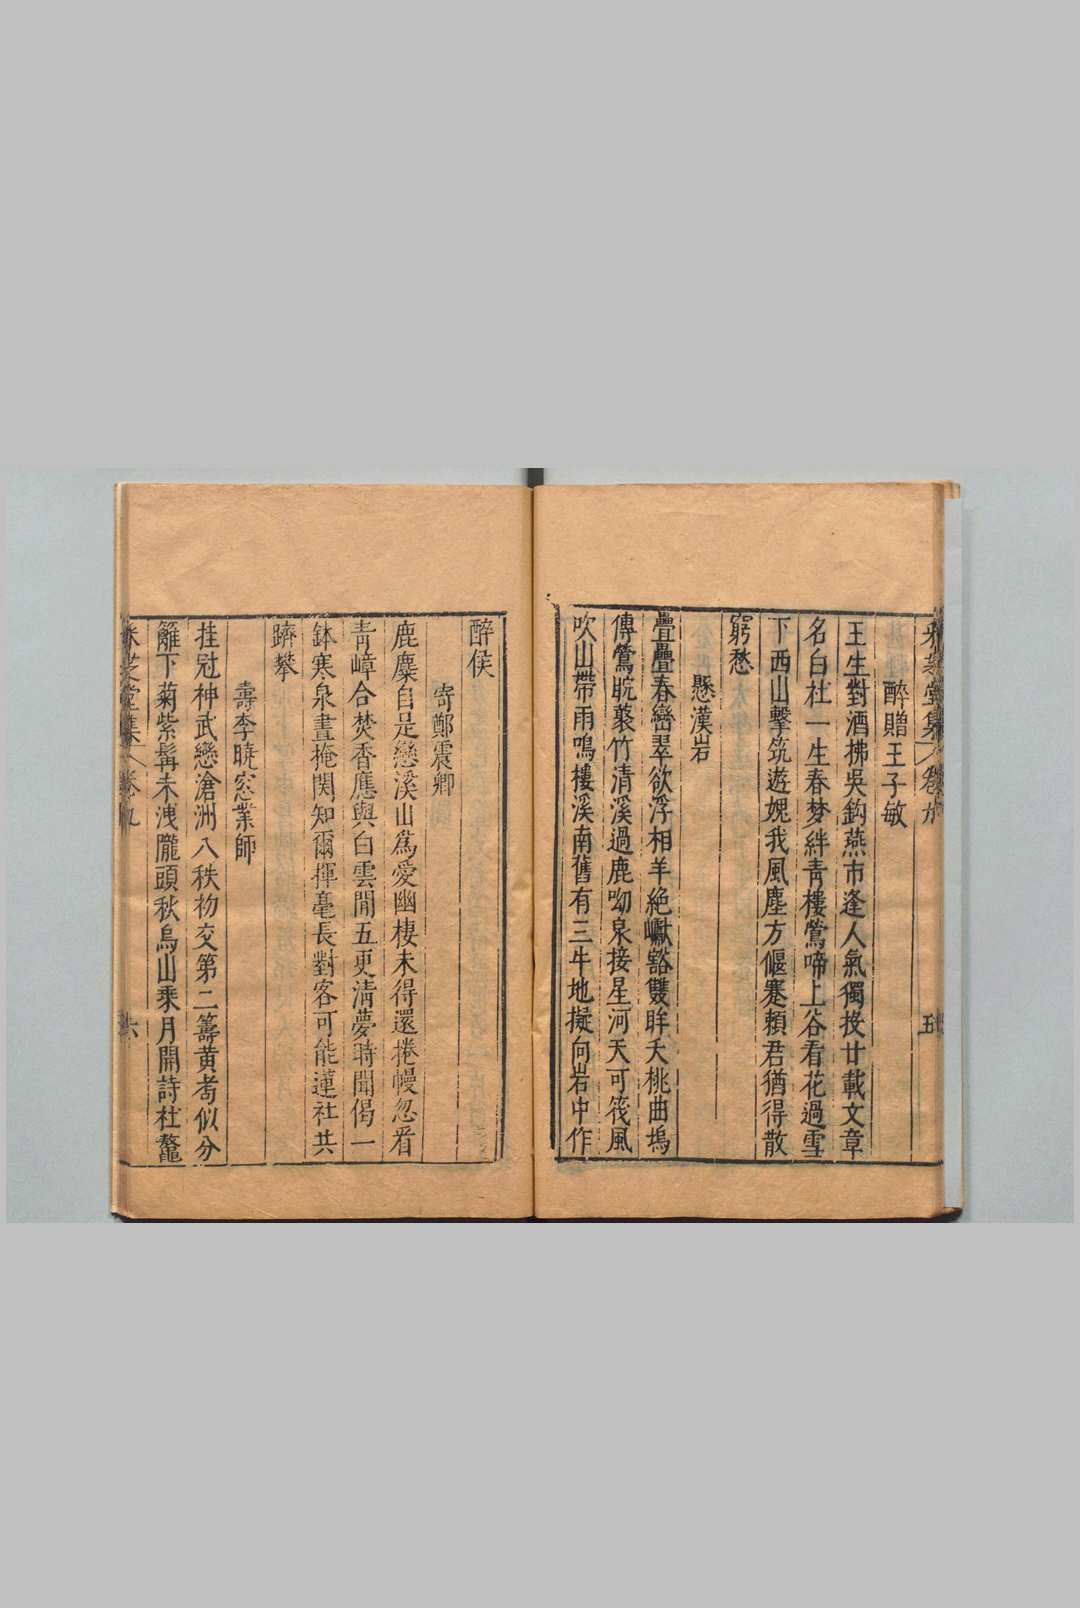 醉贈王子敏
王生對酒拂吳鈎燕市逢人氣獨投廿載文章
名白社一生春梦絆青樓鶯啼上谷看花過雪
下西山擊筑遊媿我風塵方偃蹇賴君猶得散
窮愁
懸漢岩
疊疊春巒翠欲浮相羊絶巘豁雙眸夭桃曲塢
傳鶯睆䕺竹清溪過鹿呦泉接星河天可筏風
吹山帶雨鳴樓溪南舊有三牛地擬向岩中作
醉侯
寄鄭震卿
鹿麋自足戀溪山爲愛幽棲未得還捲幔忽看
青嶂合焚香應與白雲閒五更清夢時聞偈一
鉢寒泉晝掩関知爾揮毫長對客可能蓮社共
躋攀
壽李曉窓業師
挂冠神武戀滄洲八秩初交第二籌黄耇似分
籬下菊紫髯未洩隴頭秋烏山乘月開詩社鼇
采芝堂集 卷九 六